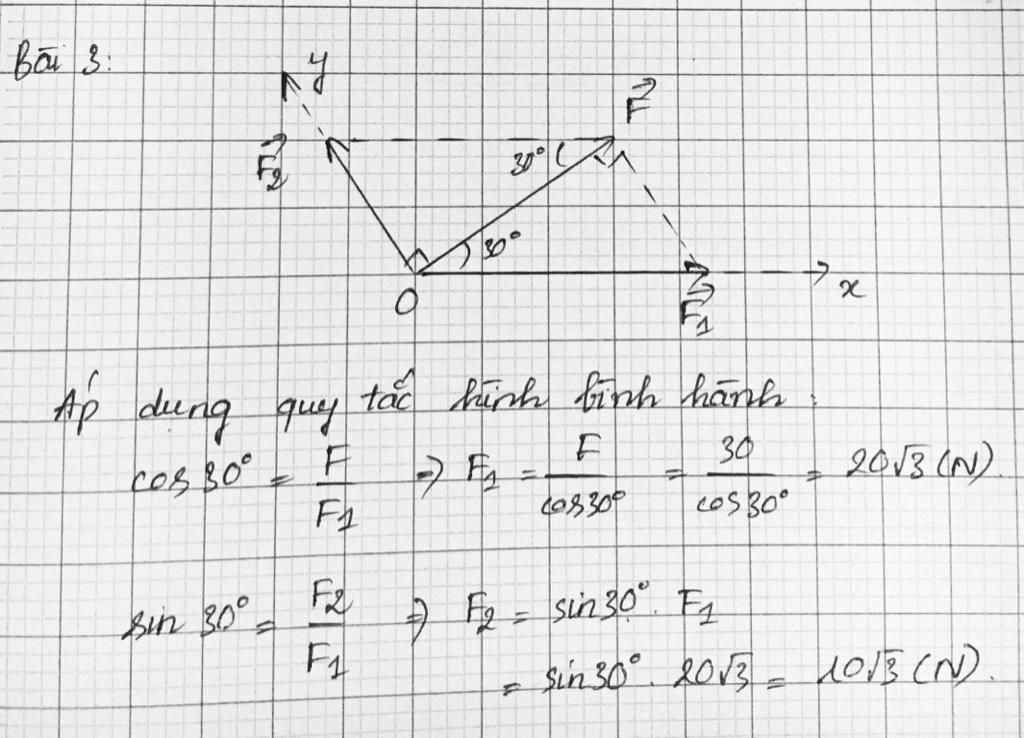 Bài 3:
y
F⃗
F⃗2
30°
30°
O
F⃗1
x
Áp dung quy tắc hình bình hành:
cos 30° = F/F1 => F1 = F/cos30° = 30/cos30° = 20√3 (N).
sin 30° = F2/F1 => F2 = sin30°. F1
= sin30°. 20√3 = 10√3 (N).